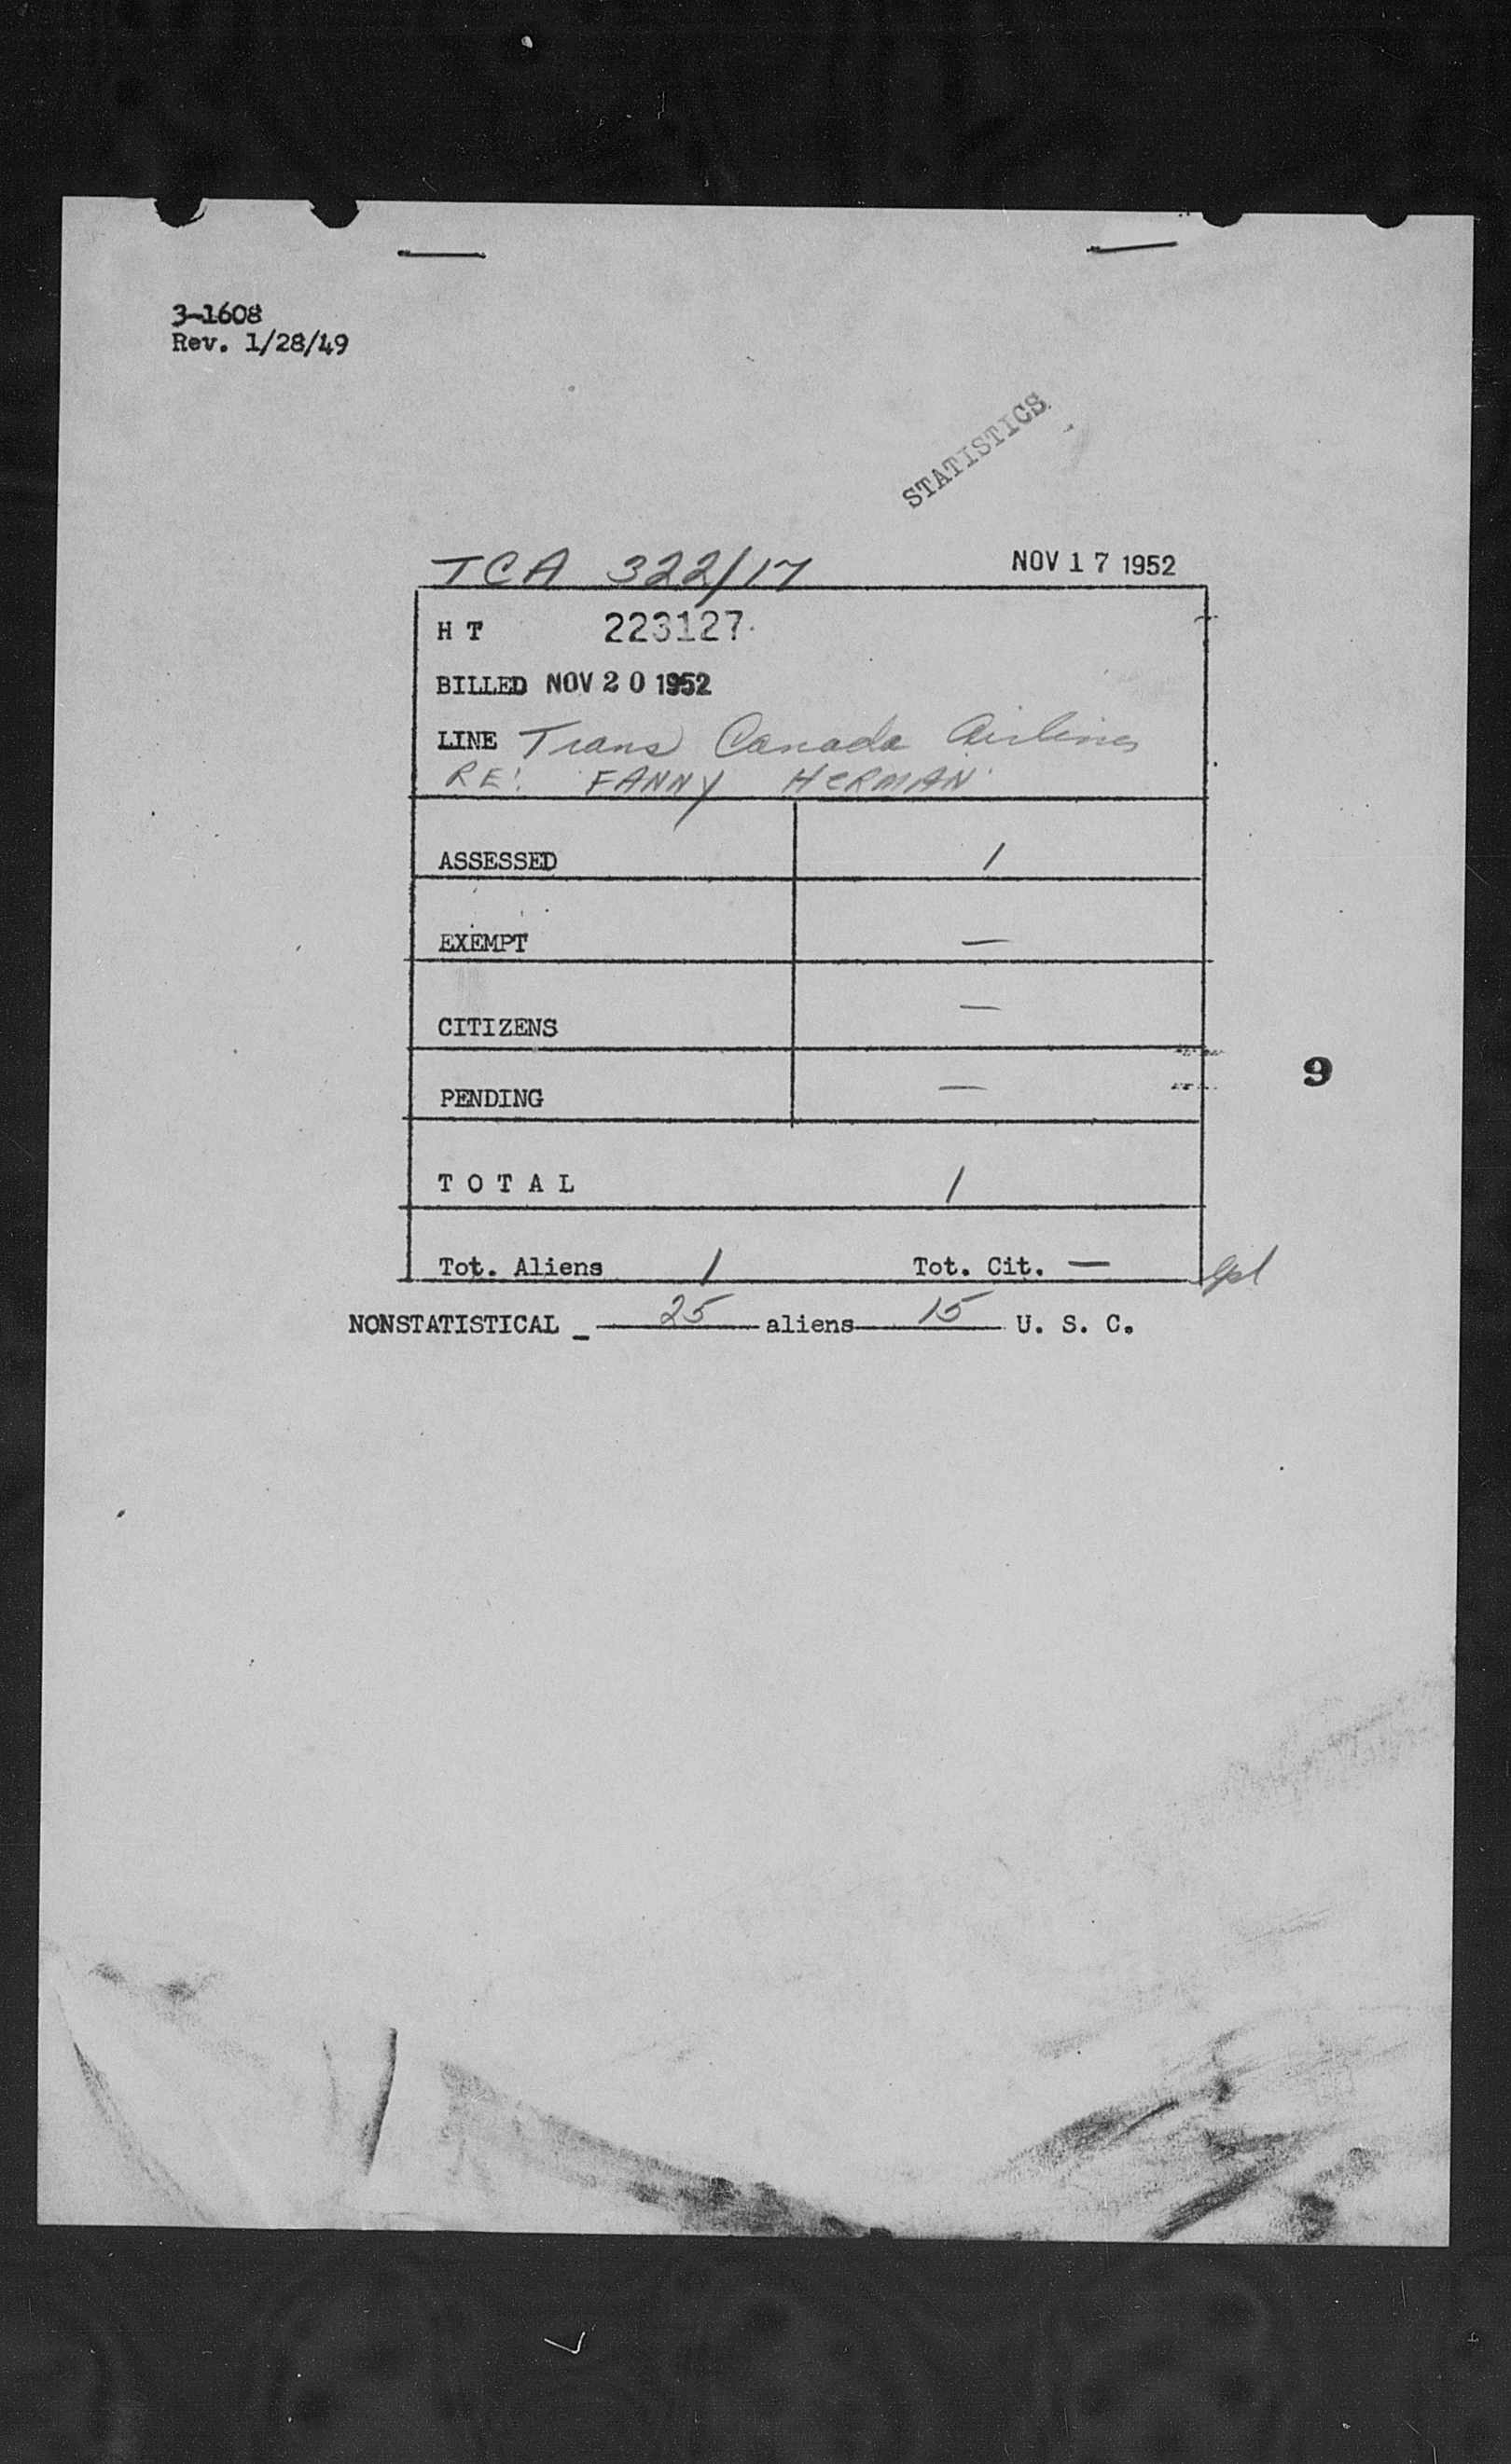 3-1608
Rev. 1/28/49
STATISTICS
TCA 322/17 NOV 17 1952
H T 223127
BILLED NOV 20 1952
LINE Trans Canada Airlines
RE: FANNY HERMAN
ASSESSED 1
EXEMPT —
CITIZENS —
PENDING —
9
T O T A L 1
Tot. Aliens 1 Tot. Cit. —
NONSTATISTICAL _ 25 aliens 15 U. S. C.